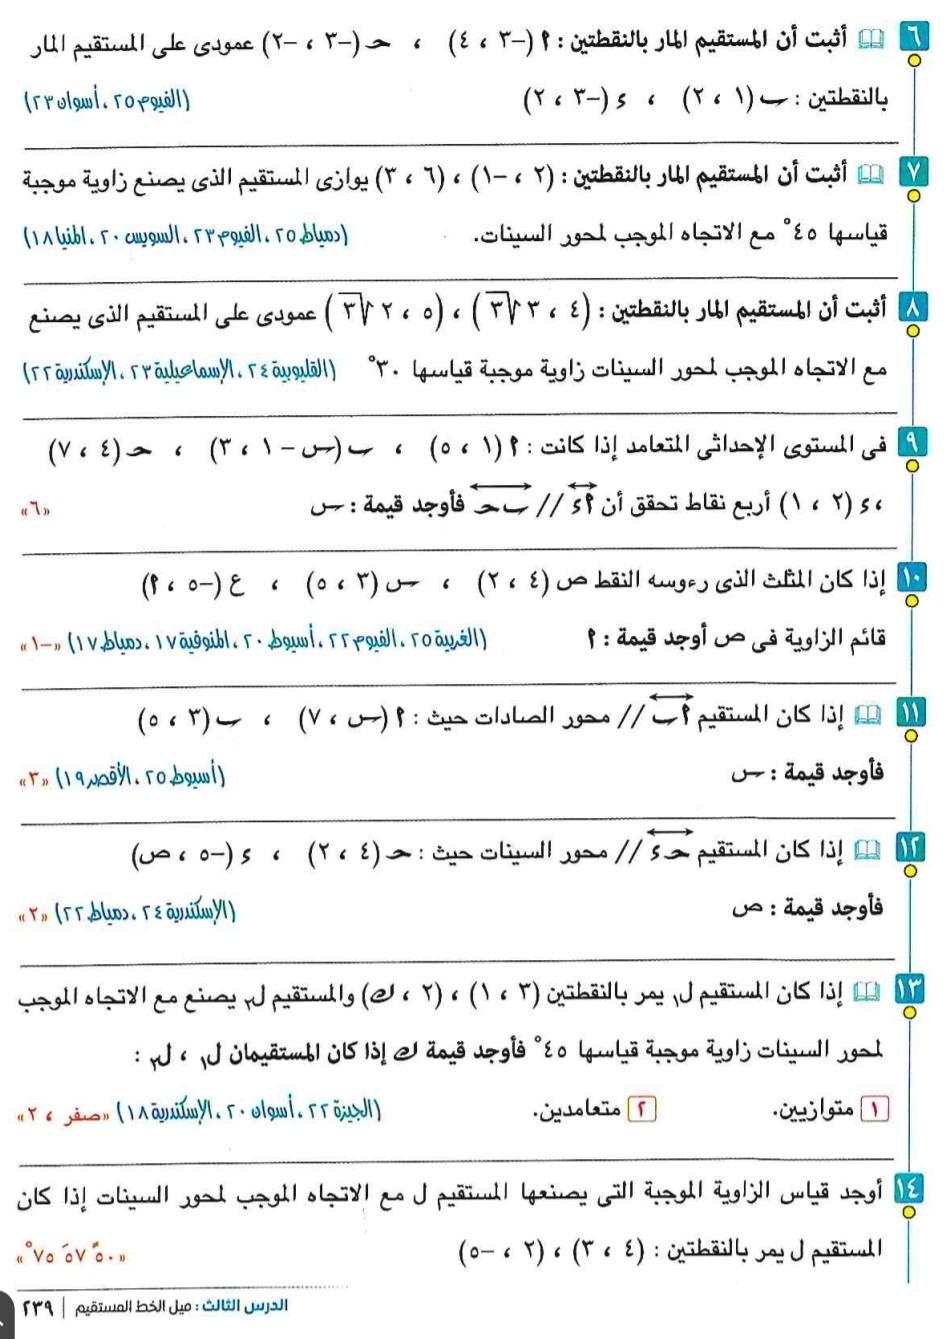 ٦ أثبت أن المستقيم المار بالنقطتين : ٢ (-٣ ، ٤) ، حـ (-٣ ، -٢) عمودى على المستقيم المار
بالنقطتين : ب (١ ، ٢) ، ء (-٣ ، ٢) (الفيوم ٢٥ ، أسوان ٢٣)
٧ أثبت أن المستقيم المار بالنقطتين : (٢ ، -١) ، (٦ ، ٣) يوازى المستقيم الذى يصنع زاوية موجبة
قياسها ٤٥° مع الاتجاه الموجب لمحور السينات. (دمياط ٢٥ ، الفيوم ٢٣ ، السويس ٢٠ ، المنيا ١٨)
٨ أثبت أن المستقيم المار بالنقطتين : (٤ ، ٣√٣) ، (٥ ، ٢√٣) عمودى على المستقيم الذى يصنع
مع الاتجاه الموجب لمحور السينات زاوية موجبة قياسها ٣٠° (القليوبية ٢٤ ، الإسماعيلية ٢٣ ، الإسكندرية ٢٢)
٩ فى المستوى الإحداثى المتعامد إذا كانت : ٢ (١ ، ٥) ، ب (س - ١ ، ٣) ، حـ (٤ ، ٧)
، ء (٢ ، ١) أربع نقاط تحقق أن ٢ء // ب حـ فأوجد قيمة : س «٦»
١٠ إذا كان المثلث الذى رءوسه النقط ص (٤ ، ٢) ، س (٣ ، ٥) ، ع (-٥ ، ٢)
قائم الزاوية فى ص أوجد قيمة : ٢ (الغربية ٢٥ ، الفيوم ٢٢ ، أسيوط ٢٠ ، المنوفية ١٧ ، دمياط ١٧) «-١»
١١ إذا كان المستقيم ٢ب // محور الصادات حيث : ٢ (س ، ٧) ، ب (٣ ، ٥)
فأوجد قيمة : س (أسيوط ٢٥ ، الأقصر ١٩) «٣»
١٢ إذا كان المستقيم حـ ء // محور السينات حيث : حـ (٤ ، ٢) ، ء (-٥ ، ص)
فأوجد قيمة : ص (الإسكندرية ٢٤ ، دمياط ٢٢) «٢»
١٣ إذا كان المستقيم ل١ يمر بالنقطتين (٣ ، ١) ، (٢ ، ك) والمستقيم ل٢ يصنع مع الاتجاه الموجب
لمحور السينات زاوية موجبة قياسها ٤٥° فأوجد قيمة ك إذا كان المستقيمان ل١ ، ل٢ :
١ متوازيين. ٢ متعامدين. (الجيزة ٢٢ ، أسوان ٢٠ ، الإسكندرية ١٨) «صفر ، ٢»
١٤ أوجد قياس الزاوية الموجبة التى يصنعها المستقيم ل مع الاتجاه الموجب لمحور السينات إذا كان
المستقيم ل يمر بالنقطتين : (٤ ، ٣) ، (٢ ، -٥) «٥٠ً ٥٧َ ٧٥°»
الدرس الثالث : ميل الخط المستقيم | ٢٣٩